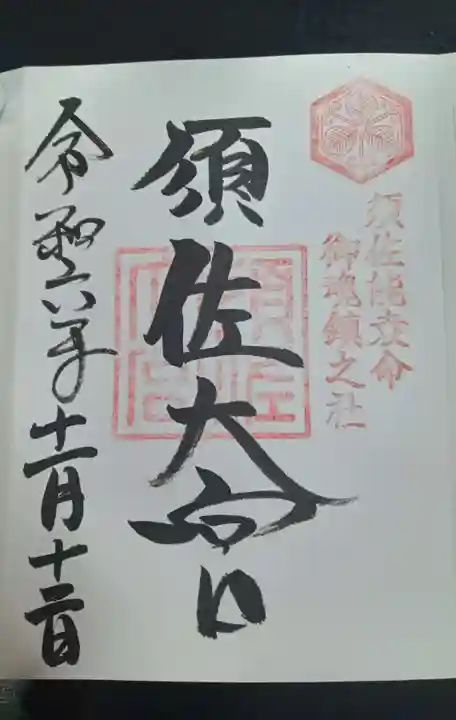 須佐能袁命
御魂鎮之社
須佐大宮
令和六年十一月十二日